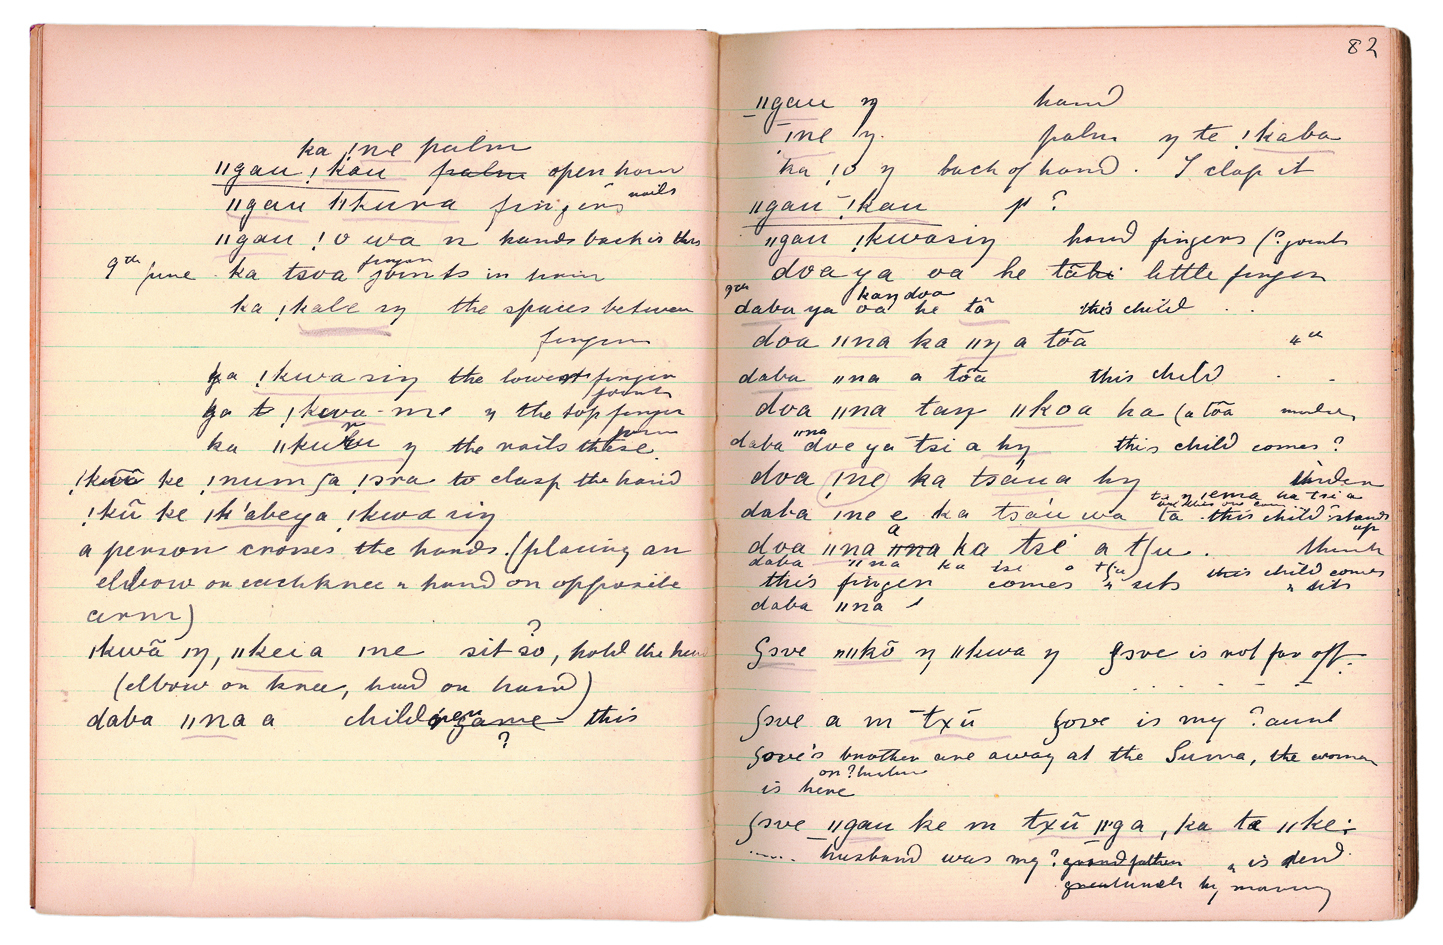 ka !ne palm
ǁgau !kau palm open hand
ǁgau ǁkura fingers nails
ǁgau !o wa n hands back is this
9th June ka tsoa finger joints in
ka !kale ŋ the spaces between
fingers
ga !kwa siŋ the lowest finger joints
ga te !kwa-me ŋ the top finger
ka ǁkuru ŋ the nails these
!kwā ke !num ʃa !sra to clasp the hand
!kū ke !k'abeya !kwa siŋ
a person crosses the hands. (placing an
elbow on each knee & hand on opposite
arm)
ǀkwā ŋ, ǁkei a ǀne sit so, hold the
?
(elbow on knee, hand on hand)
daba ǁna a children game this
?
82
ǁgau ŋ hand
!ne ŋ. palm ŋ te !kaba
ka !o ŋ back of hand. I clap it
ǁgau !kau p ?
ǁgau !kwasiŋ hand fingers (? joints
doa ya oa he tāki little finger
9th kaŋ doa
daba ya oa he tā this child . .
doa ǁna ka ǁŋ a tõa " "
daba ǁna a tõa this child . .
doa ǁna taŋ ǁkoa ka (a tõa
daba ǁna doe ya tsi a hŋ this child comes?
doa !ne ka tsáua hŋ
ta ŋ ǀema ka tsi a
daba ǀne e ka tsáu wa ta this child stands up
doa ǁna a ǁna ka tsé a tʃu . thumb
daba ǁna ka tse a tʃu this child comes
this finger comes & sits & sits
daba ǁna
ʃɔve ǁkō ŋ ǁkwa ŋ ʃɔve is not far off.
ʃɔve a m txū ʃɔve is my ? aunt
ʃɔve's brother are away at the Suma, the woman
is here
ʃɔve ǁgau ke m txū ǁga, ka ta ǁke:
husband was my ? grandfather & is dead
greatuncle by marriage